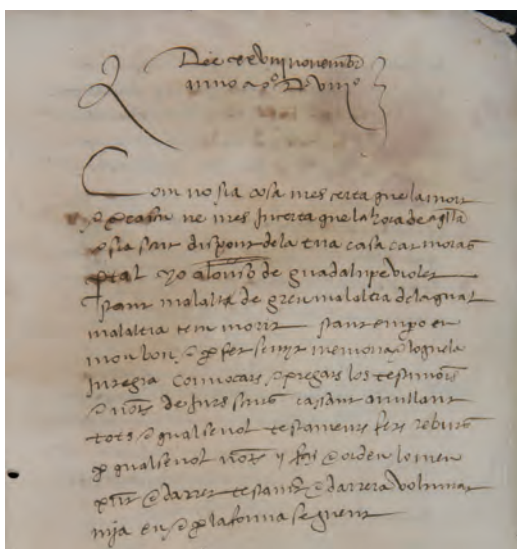 Die xxviiij novembr
anno a ṗ° D viiij°
Com no sia cosa mes certa que la mort
ne mes incerta que la hora de aqlla
e sia scrit dispon dela tua casa car moras
ptal yo alonso de guadalupe violer
stant malalt de greu malaltia dela qual
malaltia tem morir stant empo en
mon bon e fer seny memoria e loquela
integra convocats e pregats los testimonis
e nots de jus scrits cassant anullant
tots e qualsevol testaments fets rebuts
p qualsevol nots y fas e orden lo meu
e darrer testamt e darrera voluntat
mia en e p la forma seguent